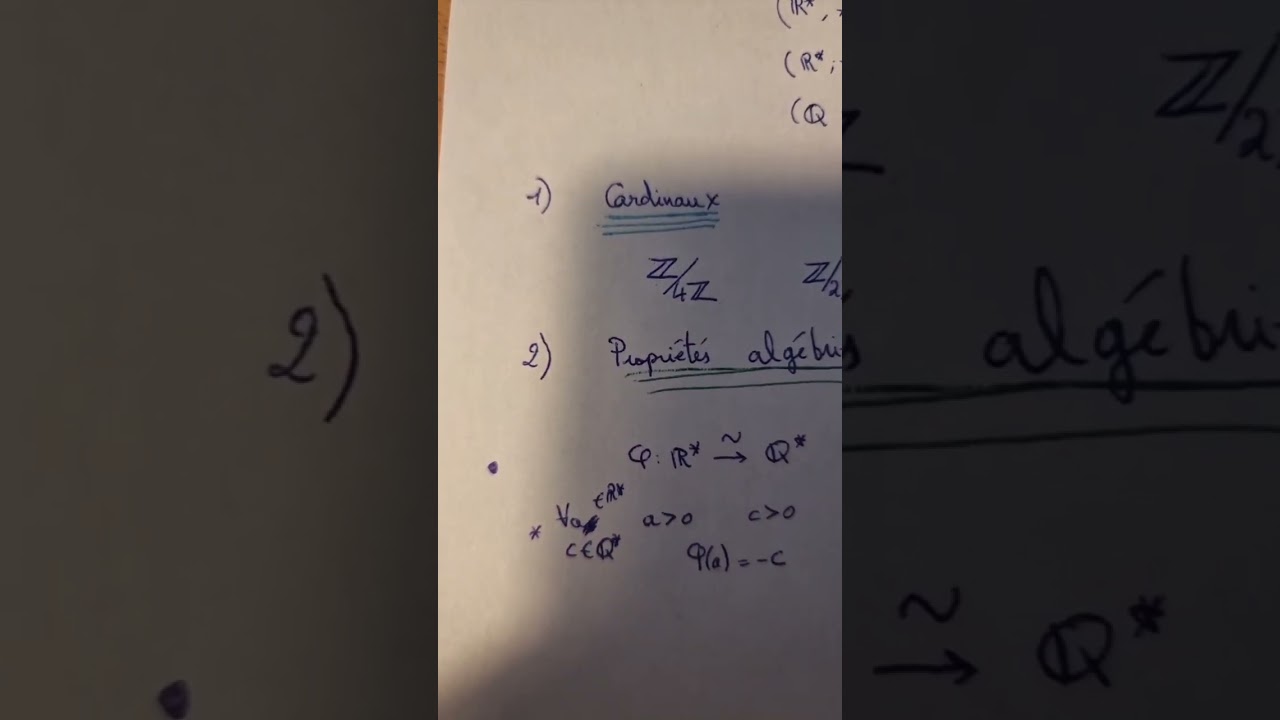 (ℝ*,
(ℝ*,
(ℚ
1) Cardinaux
ℤ/4ℤ ℤ/2
2) Propriétés algébri
φ: ℝ* ⥲ ℚ*
* ∀a ∈ℝ* a>0 c>0
c∈ℚ* φ(a) = -c